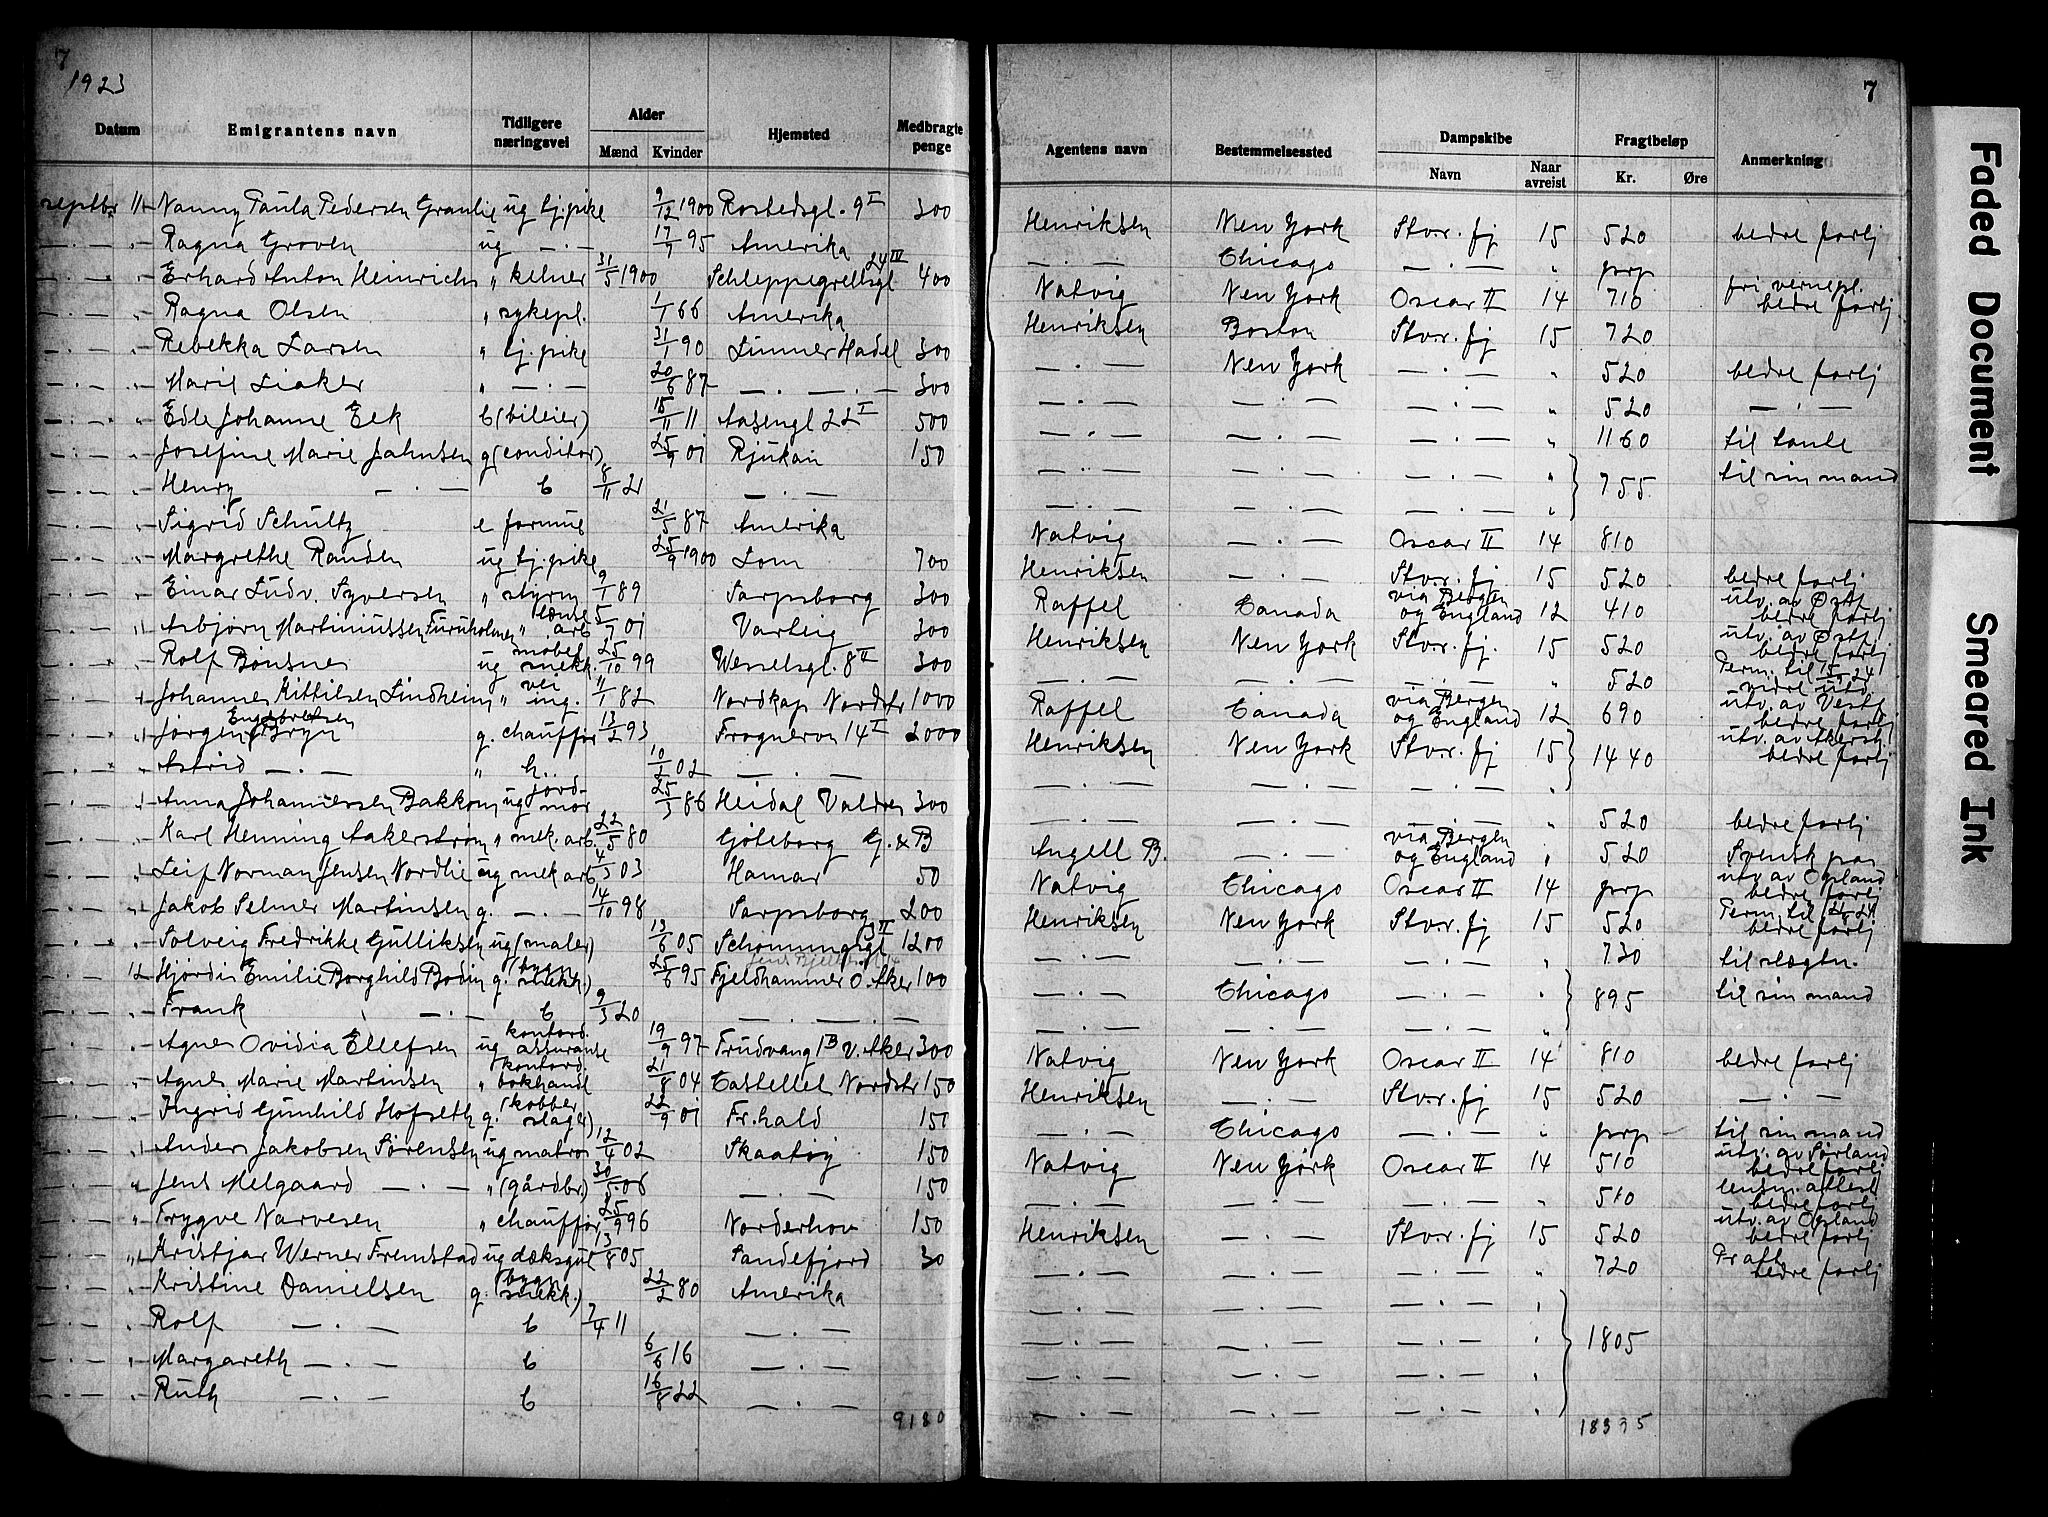 7
1923
Datum Emigrantens navn Tidligere næringsvei Alder Mænd Kvinder Hjemsted Medbragte penge
septbr 11 Nanny Paula Pedersen Granlie ug tj.pike 9/12 1900 Rostedsgt. 9 I 300
— . — „ Ragna Groven ug — . — 17/9 95 Amerika
— . — „ Erhard Anton Heinrichs „ kelner 31/5 1900 Schleppegrellsgt 24 IV 400
— . — „ Ragna Olsen „ sykepl. 1/1 66 Amerika
— . — „ Rebekka Larsen „ tj.pike 31/1 90 Linner Hadel 300
— . — „ Marie Liaker „ — . — 20/6 87 — . — . — 300
— . — „ Edle Johanne Eek b (bileier) 15/11 11 Aasengt 22 I 500
— . — „ Josefine Marie Jahnsen g (conditor) 25/9 01 Rjukan 150
— . — „ Henry — . — b 8/11 21 — . —
— . — „ Sigrid Schultz e formue 21/5 87 Amerika
— . — „ Margrethe Randen ug tj.pike 25/9 1900 Lom 700
— . — „ Einar Ludv. Syversen „ styrm 9/1 89 Sarpsborg 300
— . — „ Asbjørn Martinussen Furuholmen „ lænse arb 5/7 01 Varteig 300
— . — „ Rolf Bønsnes ug møbel snekk. 25/10 99 Wesselsgt. 8 II 300
— . — „ Johannes Kittilsen Lindheim „ vei ing. 11/1 82 Nordkap Nordstr 1000
— . — „ Jørgen Engebretsen Bryn g. chauffør 13/2 93 Frognervn 14 I 2000
— . — „ Astrid — . — „ h.. 10/2 02 — . —
— . — „ Anna Johannessen Bakkom ug jord-mor 25/3 86 Heidal Valdres 300
— . — „ Karl Henning Aakerstrøm „ mek. arb. 22/5 80 Gøteborg G. & B
— . — „ Leif Norman Jensen Nordlie ug mek arb 4/5 03 Hamar 50
— . — „ Jakob Selmer Martinsen g. — . — 14/10 98 Sarpsborg 200
— . — „ Solveig Fredrikke Gulliksen ug (maler) 13/6 05 Schønningsgt 1200
— . — 12 Hjørdis Emilie Borghild Bodin g. (bygn snekk.) 25/6 95 Fjeldhammer Ø. Aker 100
— . — „ Frank — . — b 9/3 20 — . — . —
— . — „ Agnes Ovidia Ellefsen ug kontord. assuranse 19/9 97 Frudvang 1B V. Aker 300
— . — „ Agnes Marie Martinsen „ kontord. bokhandl 21/8 04 Castellet Nordstr 150
— . — „ Ingrid Gunhild Hofseth g. (kobberslager) 22/9 01 Fr.hald 150
— . — „ Anders Jakobsen Sørensen ug matros 12/4 02 Skaatøy 150
— . — „ Jens Melgaard — . — „ (gårdbr.) 30/5 06 — . — 150
— . — „ Trygve Narvesen „ chauffør 25/9 96 Norderhov 150
— . — „ Kristjar Werner Fremstad ug dæksgut 13/8 05 Sandefjord 30
— . — „ Kristine Danielsen g. (bygn snekk.) 22/2 80 Amerika
— . — „ Rolf — . — b 7/4 11 — . —
— . — „ Margareth — . — b 6/6 16 — . —
— . — „ Ruth — . — b 16/8 22 — . —
9180
7
Agentens navn Bestemmelsessted Dampskibe Navn Naar avreist Fragtbeløp Kr. Øre Anmerkning
Henriksen New York Stvr. fj 15 520 bedre forlj
— . — Chicago — . — „ prp
Natvig New York Oscar II 14 710 fri vernepl. bedre forlj
Henriksen Boston Stvr. fj 15 720
— . — New York — . — „ 520 bedre forlj
— . — — . — — . — „ 520 — . —
— . — — . — — . — „ 1160 til tante
— . — — . — — . — „ } 755 til sin mand
— . — — . — — . — „
Natvig Oscar II 14 810
Henriksen — . — Stvr. fj 15 520 bedre forlj
Raffel Canada via Bergen og England 12 410 utv. av Østf bedre forlj
Henriksen New York Stvr. fj. 15 520 utv. av Østf. bedre forlj
— . — — . — — . — „ 520 Perm. til 15/9 24 vidre utd.
Raffel Canada via Bergen og England 12 690 utv. av Vestf bedre forlj
Henriksen New York Stvr. fj 15 } 1440 utv. av Akersh. bedre forlj
— . — — . — — . — „
— . — — . — — . — „ 520 bedre forlj
Angell B. — . — via Bergen og England „ 520 Svensk pas
Natvig Chicago Oscar II 14 prp utv. av Opland bedre forlj
Henriksen New York Stvr. fj 15 520 Perm. til bedre forlj
— . — — . — — . — „ 730 til slægtn.
— . — Chicago — . — „ } 895 til sin mand
— . — — . — — . — „
Natvig New York Oscar II 14 810 bedre forlj
Henriksen — . — Stvr. fj 15 520 — . —
— . — Chicago — . — „ prp — til sin mand
Natvig New York Oscar II 14 510 utv. av Sørland bedre forlj
— . — — . — — . — „ 510 lensm. attest bedre forlj
Henriksen — . — Stvr. fj 15 520 utv. av Opland bedre forlj
— . — — . — — . — „ 720 bedre forlj
— . — — . — — . — „ } 1805
— . — — . — — . — „
— . — — . — — . — „
— . — — . — — . — „
18335
Faded Document
Smeared Ink